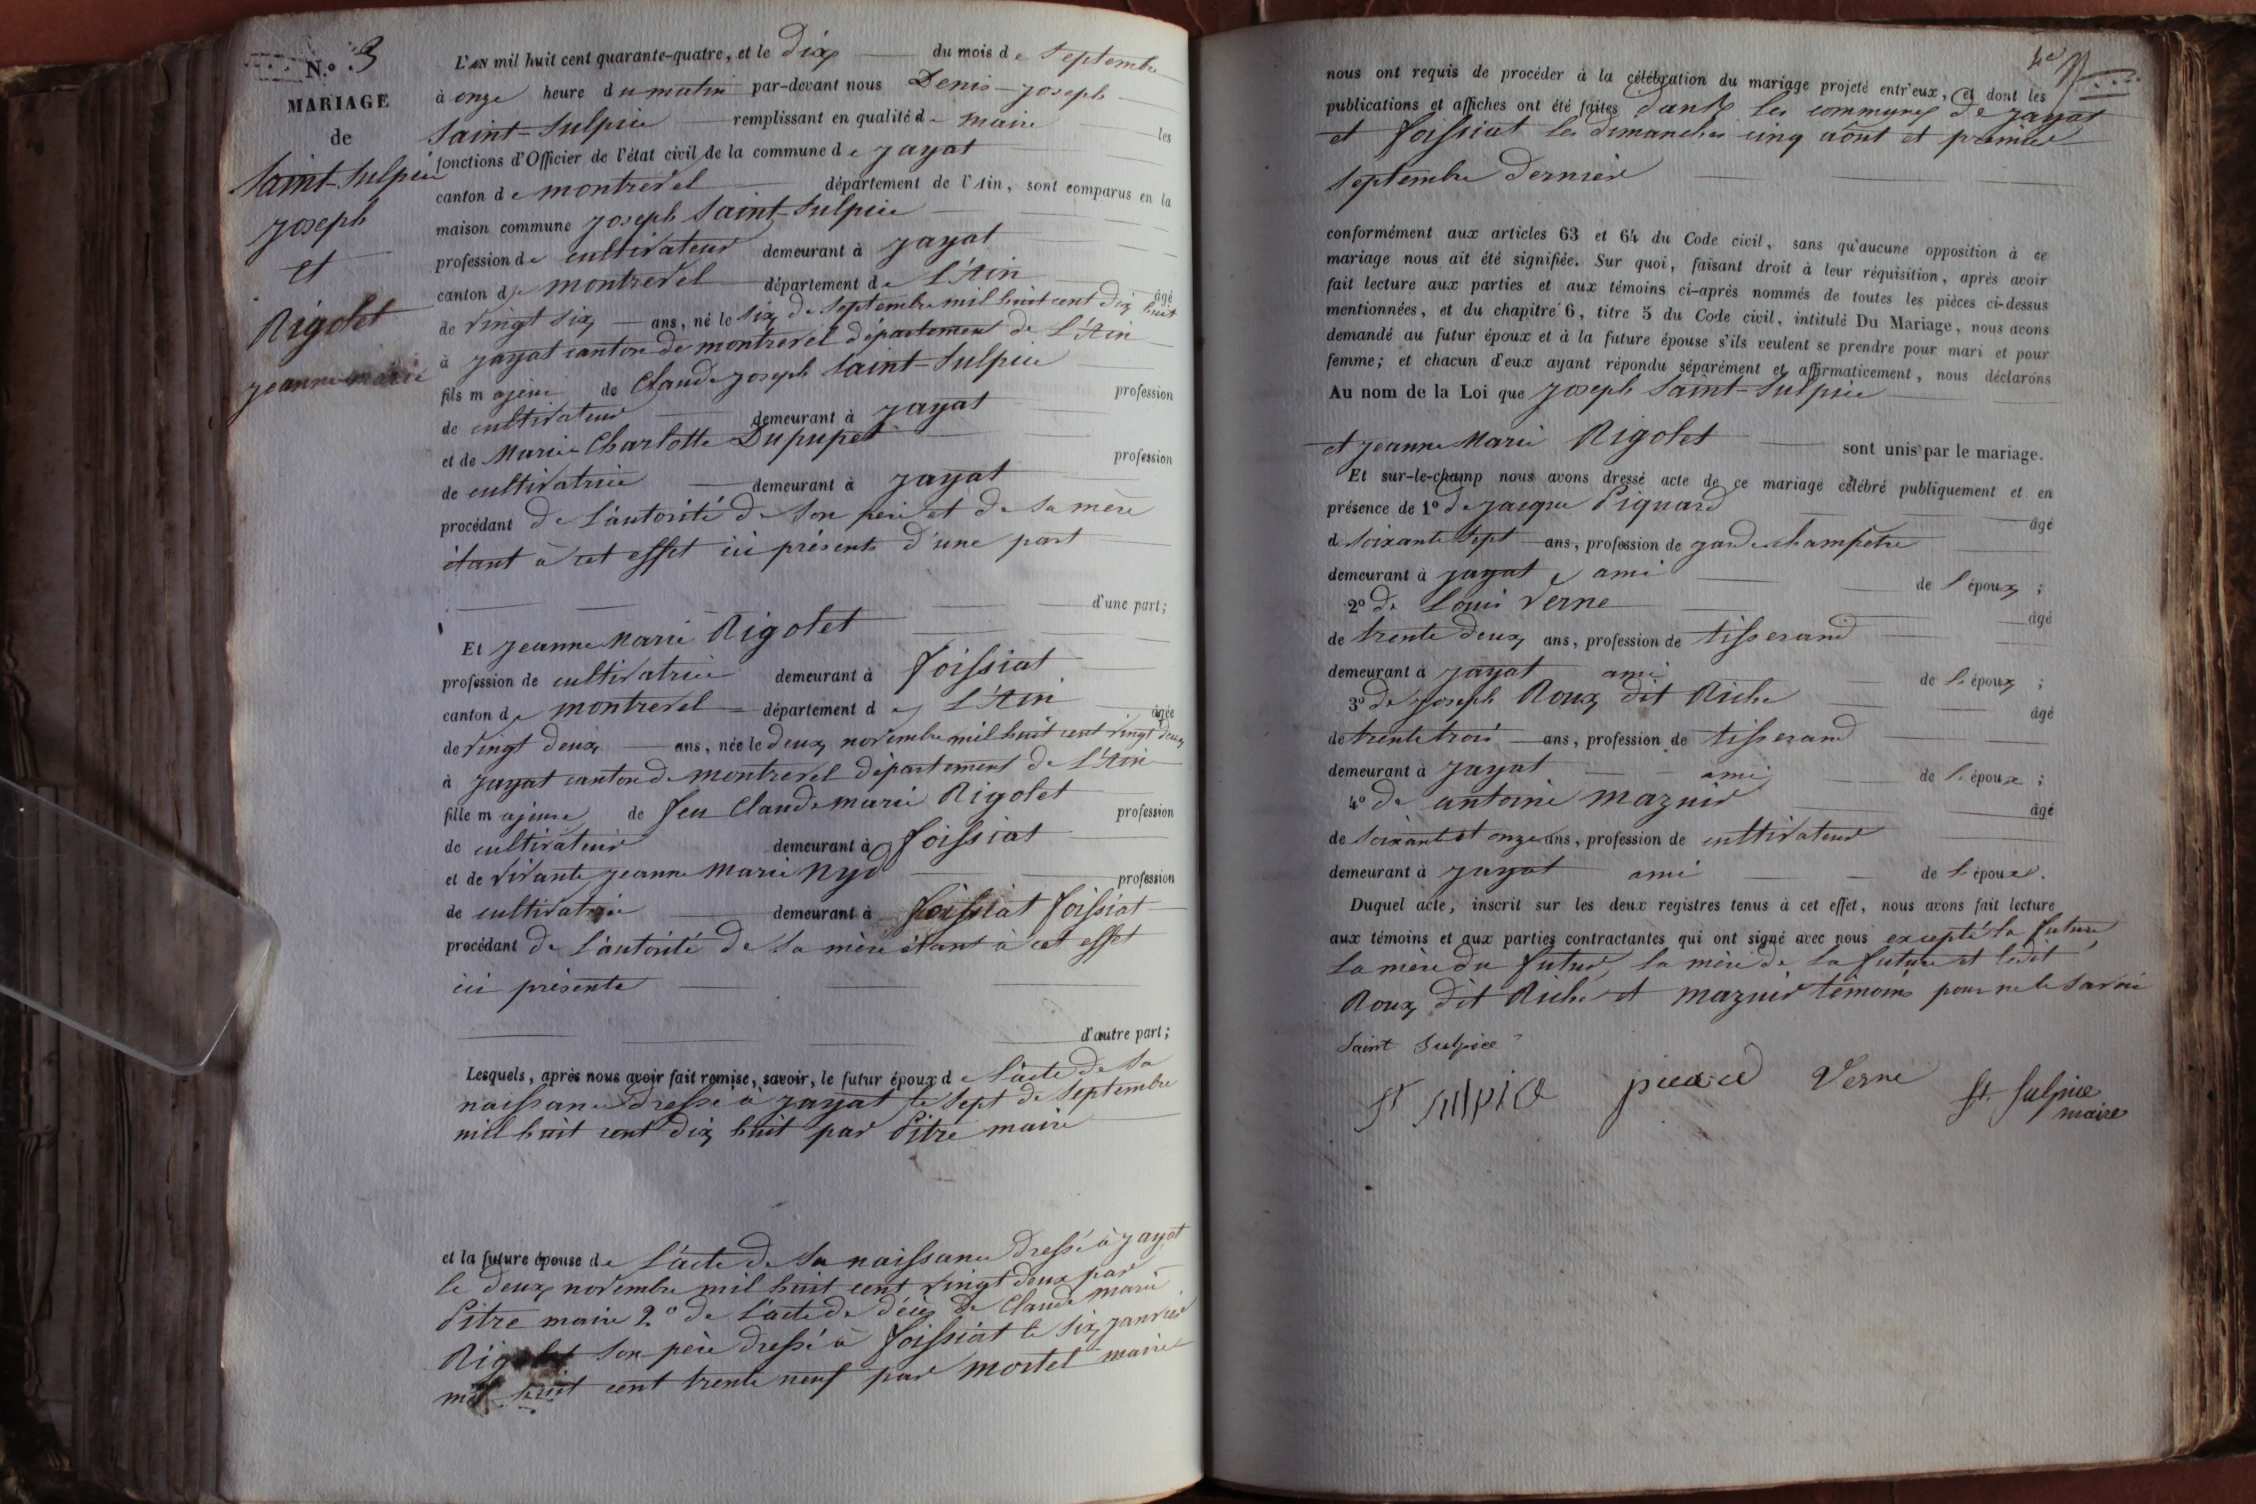 N.º 3
MARIAGE
de
Saint-Sulpice
Joseph
et
Rigolet
jeanne marie
L'AN mil huit cent quarante-quatre, et le Dix du mois de Septembre
à onze heure du matin par-devant nous Denis-Joseph
Saint-Sulpice remplissant en qualité de maire les
fonctions d'Officier de l'état civil de la commune de jayat
canton de montrevel département de l'Ain, sont comparus en la
maison commune joseph Saint-Sulpice
profession de cultivateur demeurant à jayat
canton de montrevel département de L'Ain âgé
de vingt six ans, né le six de Septembre mil huit cent dix huit
à jayat canton de montrevel département de L'Ain
fils majeur de Claude joseph Saint-Sulpice profession
de cultivateur demeurant à jayat
et de Marie Charlotte Dupupet profession
de cultivatrice demeurant à jayat
procédant De L'autorité De Son père et De Sa mère
étant à cet effet ici présents d'une part
d'une part;
Et jeanne Marie Rigolet
profession de cultivatrice demeurant à foissiat
canton de montrevel département de L'Ain âgée
de vingt deux ans, née le deux novembre mil huit cent vingt deux
à jayat canton de montrevel département de L'Ain
fille majeure de feu Claude marie Rigolet profession
de cultivateur demeurant à foissiat
et de vivante jeanne marie nyd profession
de cultivatrice demeurant à foissiat foissiat
procédant de L'autorité de Sa mère étant à cet effet
ici présente
d'autre part;
Lesquels, après nous avoir fait remise, savoir, le futur époux de L'acte de Sa
naissance Dressé à jayat le Sept de Septembre
mil huit cent dix huit par Pitre maire
et la future épouse de L'acte de Sa naissance Dressé à jayat
le deux novembre mil huit cent vingt deux par
Pitre maire 2º de L'acte de décès de Claude marie
Rigolet Son père Dressé à foissiat le Six janvier
mil huit cent trente neuf par mortel maire
nous ont requis de procéder à la célébration du mariage projeté entr'eux, et dont les
publications et affiches ont été faites dans les communes de jayat
et foissiat les dimanches cinq août et premier
Septembre Dernier
conformément aux articles 63 et 64 du Code civil, sans qu'aucune opposition à ce
mariage nous ait été signifiée. Sur quoi, faisant droit à leur réquisition, après avoir
fait lecture aux parties et aux témoins ci-après nommés de toutes les pièces ci-dessus
mentionnées, et du chapitre 6, titre 5 du Code civil, intitulé Du Mariage, nous avons
demandé au futur époux et à la future épouse s'ils veulent se prendre pour mari et pour
femme; et chacun d'eux ayant répondu séparément et affirmativement, nous déclarons
Au nom de la Loi que joseph Saint-Sulpice
et jeanne Marie Rigolet sont unis par le mariage.
Et sur-le-champ nous avons dressé acte de ce mariage célébré publiquement et en
présence de 1º De jacque Piquard âgé
de Soixante Sept ans, profession de garde champêtre
demeurant à jayat ami de l'époux;
2º de Louis Verne âgé
de trente deux ans, profession de tisserand
demeurant à jayat ami de l'époux;
3º De joseph Roux dit Riche âgé
de trente trois ans, profession de tisserand
demeurant à jayat ami de l'époux;
4º de antoine maznir âgé
de Soixante et onze ans, profession de cultivateur
demeurant à jayat ami de l'époux.
Duquel acte, inscrit sur les deux registres tenus à cet effet, nous avons fait lecture
aux témoins et aux parties contractantes qui ont signé avec nous excepté la future
La mère du futur, la mère de La future et ledit
Roux dit Riche et maznir témoins pour ne le savoir
Saint Sulpice
St Sulpice Verne St. Sulpice
maire